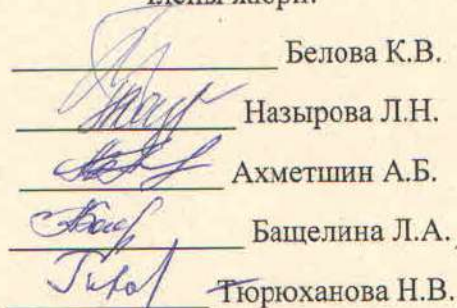 члены жюри:
Белова К.В.
Назырова Л.Н.
Ахметшин А.Б.
Бащелина Л.А.
Тюрюханова Н.В.